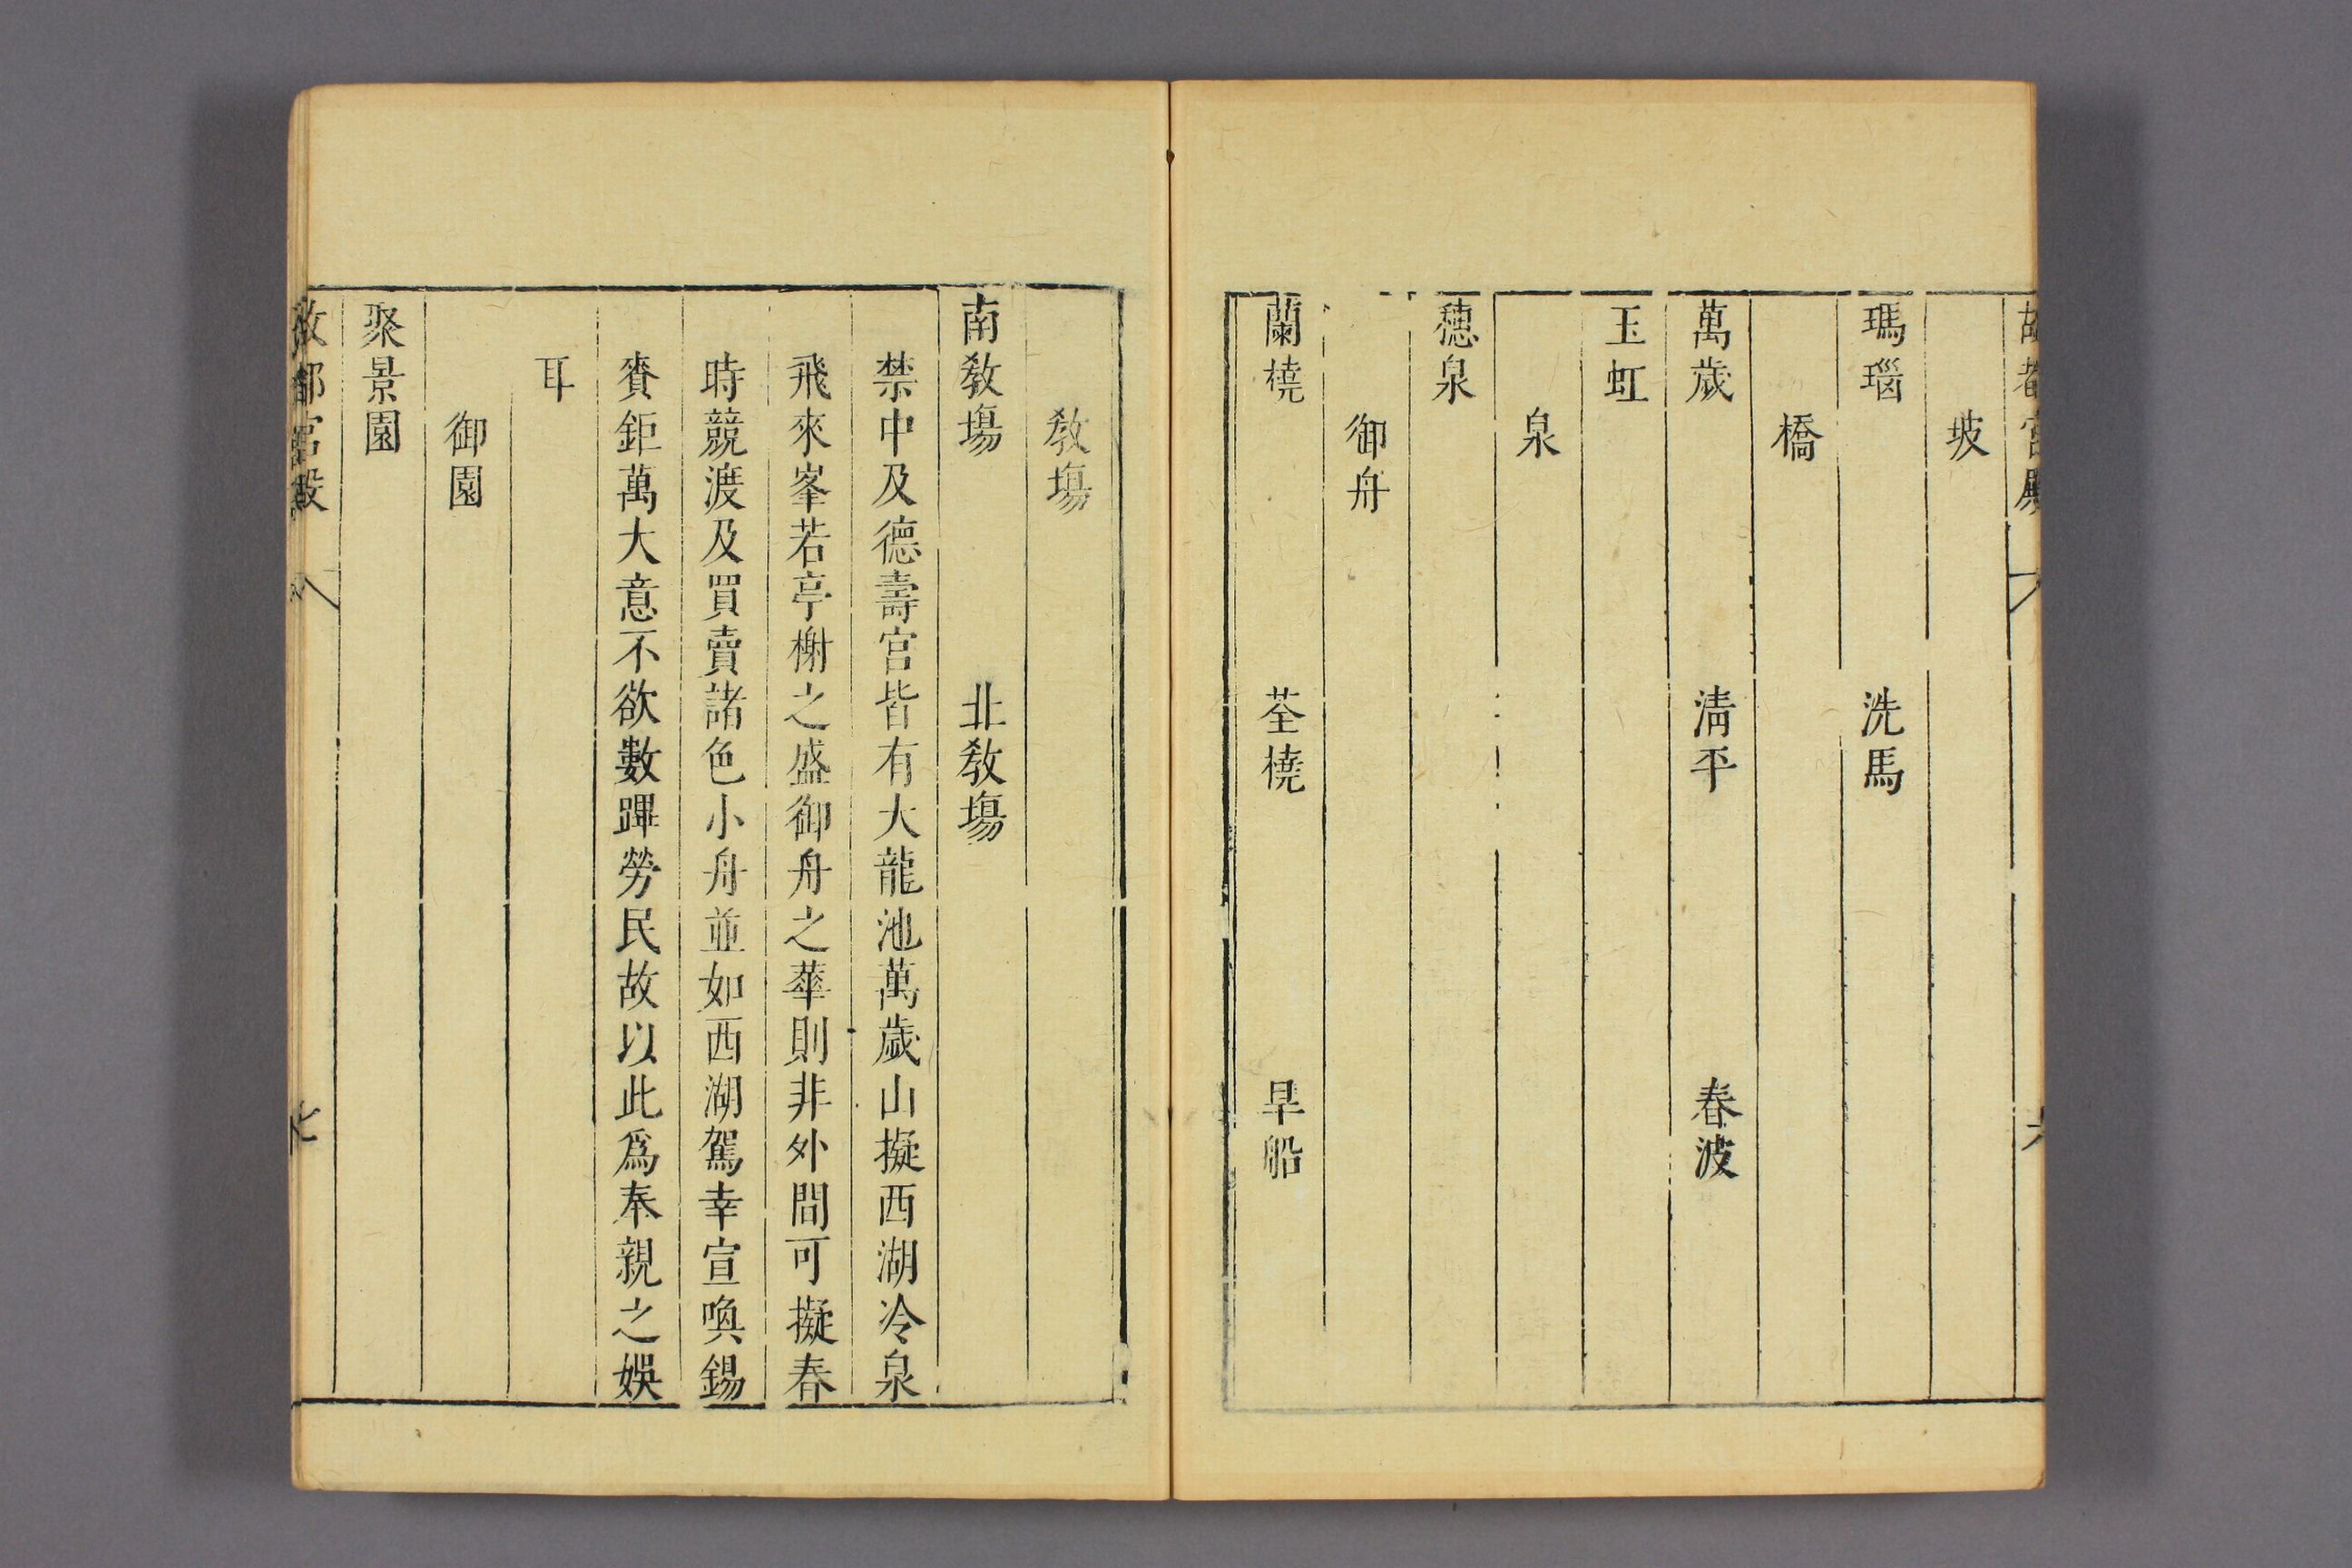 故都宮殿 六
坡
瑪瑙 洗馬
橋
萬歲 清平 春波
玉虹
泉
穗泉
御舟
蘭橈 荃橈 旱船
教塲
南教塲 北教塲
禁中及德壽宮皆有大龍池萬歲山擬西湖冷泉
飛來峯若亭榭之盛御舟之華則非外間可擬春
時競渡及買賣諸色小舟並如西湖駕幸宣喚錫
賚鉅萬大意不欲數蹕勞民故以此爲奉親之娛
耳
御園
聚景園
故都宮殿 七